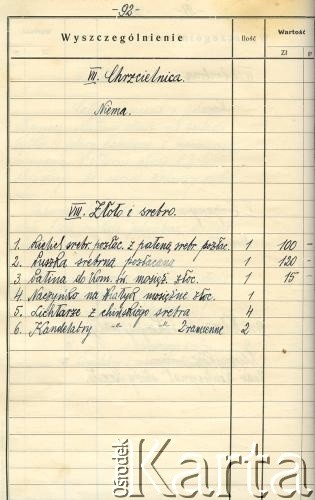 -92-
Wyszczególnienie Ilość Wartość
Zł
VII. Chrzcielnica.
Niema.
VIII. Złoto i srebro.
1. Kielich srebr. pozłac. z pateną srebr. pozłac. 1 100 -
2. Puszka srebrna pozłacana 1 120 -
3. Patina do Kom. św. mosięż. złoc. 1 15 -
4. Naczyńko na Wiatyk mosiężne złoc. 1
5. Lichtarze z chińskiego srebra 4
6. Kandelabry " " 2 ramienne 2
ośrodek
Karta